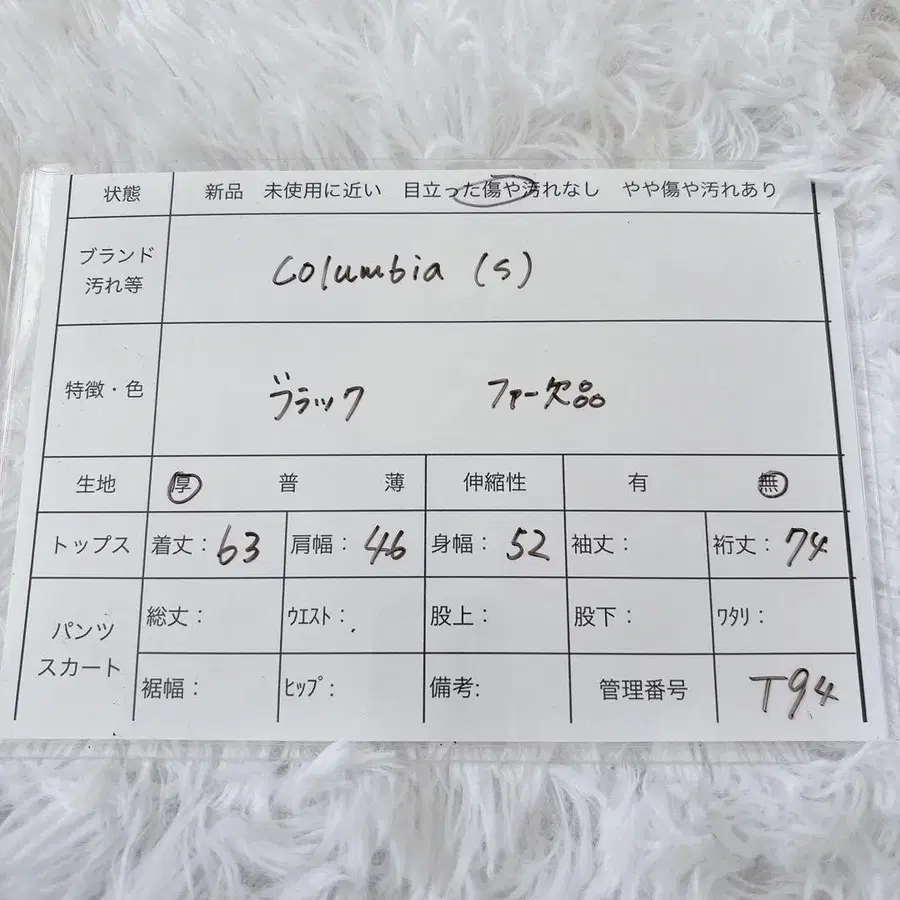 状態 新品 未使用に近い 目立った傷や汚れなし やや傷や汚れあり
ブランド
汚れ等
Columbia (S)
特徴・色 ブラック ファー欠品
生地 厚 普 薄 伸縮性 有 無
トップス 着丈：63 肩幅：46 身幅：52 袖丈： 裄丈：74
パンツ
スカート
総丈： ｳｴｽﾄ： 股上： 股下： ﾜﾀﾘ：
裾幅： ﾋｯﾌﾟ： 備考: 管理番号 T94